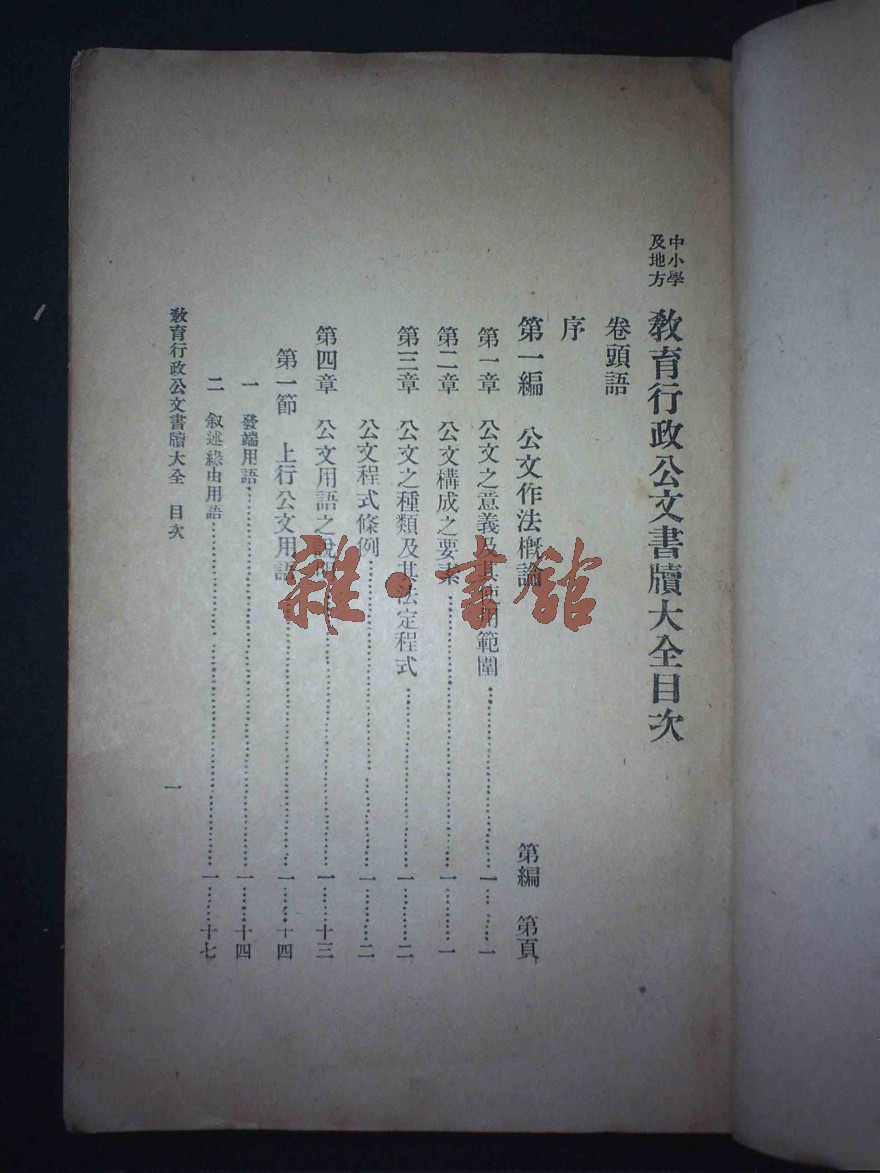 中小學
及地方
教育行政公文書牘大全目次
卷頭語
序
第一編　公文作法概論　第編　第頁
第一章　公文之意義及其使用範圍…………一……一
第二章　公文構成之要素…………一……一
第三章　公文之種類及其法定程式…………一……二
公文程式條例…………一……二
第四章　公文用語之說明…………一……十三
第一節　上行公文用語…………一……十四
一　發端用語…………一……十四
二　敍述緣由用語…………一……十七
教育行政公文書牘大全　目次
一
雜·書館